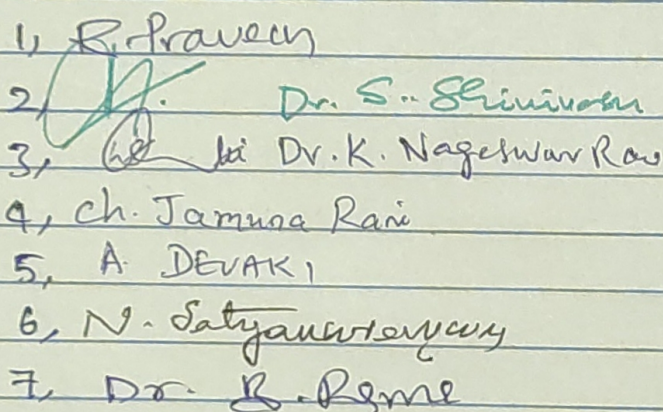 1, R. Praveen
2, Dr. S. Shinivasu
3, Dr. K. Nageswar Rao
4, Ch. Jamuna Rani
5, A. DEVAKI
6, N. Satyanarayana
7, Dr. B. Rame